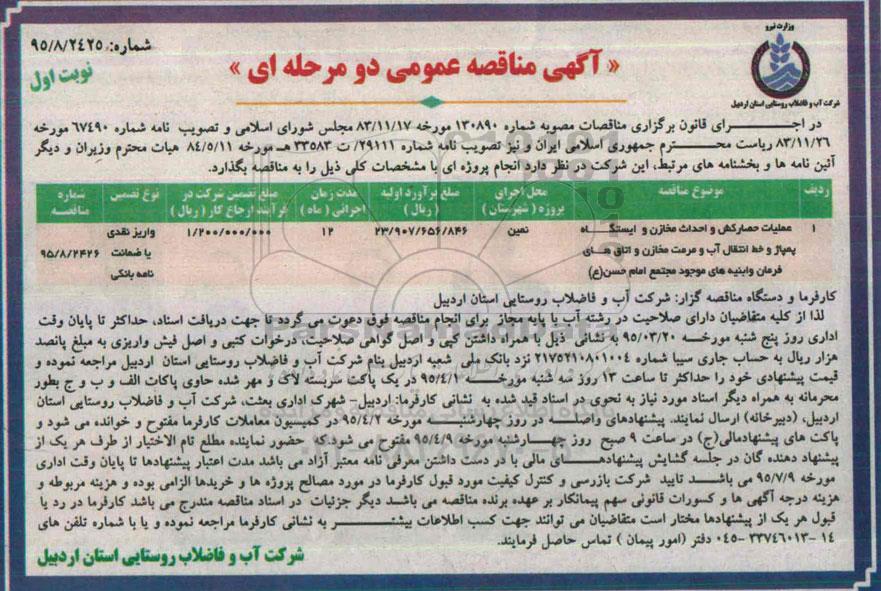 وزارت نیرو
شرکت آب و فاضلاب روستایی استان اردبیل
شماره: ۹۵/۸/۲۴۲۵
نوبت اول
« آگهی مناقصه عمومی دو مرحله ای »
در اجرای قانون برگزاری مناقصات مصوبه شماره ۱۳۰۸۹۰ مورخه ۸۳/۱۱/۱۷ مجلس شورای اسلامی و تصویب نامه شماره ۶۷۴۹۰ مورخه
۸۳/۱۱/۲۶ ریاست محترم جمهوری اسلامی ایران و نیز تصویب نامه شماره ۲۹۱۱۱/ ت ۳۳۵۸۳ هـ مورخه ۸۴/۵/۱۱ هیات محترم وزیران و دیگر
آئین نامه ها و بخشنامه های مرتبط، این شرکت در نظر دارد انجام پروژه ای با مشخصات کلی ذیل را به مناقصه بگذارد.
ردیف موضوع مناقصه محل اجرای پروژه ( شهرستان ) مبلغ برآورد اولیه ( ریال ) مدت زمان اجرائی ( ماه ) مبلغ تضمین شرکت در فرآیند ارجاع کار ( ریال ) نوع تضمین شماره مناقصه
۱ عملیات حصارکشی و احداث مخازن و ایستگاه نمین ۲۳/۹۰۷/۶۵۶/۸۴۶ ۱۲ ۱/۲۰۰/۰۰۰/۰۰۰ واریز نقدی
پمپاژ و خط انتقال آب و مرمت مخازن و اتاق های یا ضمانت ۹۵/۸/۲۴۲۶
فرمان وابنیه های موجود مجتمع امام حسن(ع) نامه بانکی
کارفرما و دستگاه مناقصه گزار: شرکت آب و فاضلاب روستایی استان اردبیل
لذا از کلیه متقاضیان دارای صلاحیت در رشته آب با پایه مجاز برای انجام مناقصه فوق دعوت می گردد تا جهت دریافت اسناد، حداکثر تا پایان وقت
اداری روز پنج شنبه مورخه ۹۵/۰۳/۲۰ به نشانی ذیل با همراه داشتن کپی و اصل گواهی صلاحیت، درخوات کتبی و اصل فیش واریزی به مبلغ پانصد
هزار ریال به حساب جاری سیبا شماره ۲۱۷۵۲۱۰۸۰۱۰۰۴ نزد بانک ملی شعبه اردبیل بنام شرکت آب و فاضلاب روستایی استان اردبیل مراجعه نموده و
قیمت پیشنهادی خود را حداکثر تا ساعت ۱۳ روز سه شنبه مورخه ۹۵/۴/۱ در یک پاکت سربسته لاک و مهر شده حاوی پاکات الف و ب و ج بطور
محرمانه به همراه دیگر اسناد مورد نیاز به نحوی در اسناد قید شده به نشانی کارفرما: اردبیل- شهرک اداری بعثت، شرکت آب و فاضلاب روستایی استان
اردبیل، (دبیرخانه) ارسال نمایند. پیشنهادهای واصله در روز چهارشنبه مورخه ۹۵/۴/۲ در کمیسیون معاملات کارفرما مفتوح و خوانده می شود و
پاکت های پیشنهادمالی(ج) در ساعت ۹ صبح روز چهارشنبه مورخه ۹۵/۴/۹ مفتوح می شود.که حضور نماینده مطلع تام الاختیار از طرف هر یک از
پیشنهاد دهنده گان در جلسه گشایش پیشنهادهای مالی با در دست داشتن معرفی نامه معتبر آزاد می باشد مدت اعتبار پیشنهادها تا پایان وقت اداری
مورخه ۹۵/۷/۹ می باشد تایید شرکت بازرسی و کنترل کیفیت مورد قبول کارفرما در مورد مصالح پروژه ها و خریدها الزامی بوده و هزینه مربوطه و
هزینه درجه آگهی ها و کسورات قانونی سهم پیمانکار بر عهده برنده مناقصه می باشد دیگر جزئیات در اسناد مناقصه مندرج می باشد کارفرما در رد یا
قبول هر یک از پیشنهادها مختار است متقاضیان می توانند جهت کسب اطلاعات بیشتر به نشانی کارفرما مراجعه نموده و یا با شماره تلفن های
۱۴ -۳۳۷۴۶۰۱۳ -۰۴۵ دفتر (امور پیمان ) تماس حاصل فرمایند.
شرکت آب و فاضلاب روستایی استان اردبیل